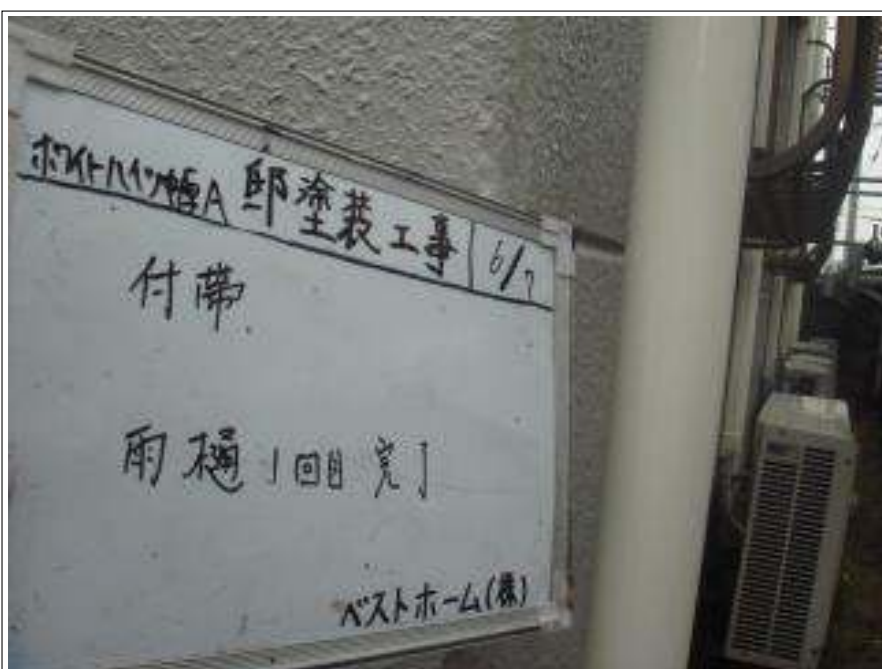 ホワイトハイツ幸A 邸塗装工事 6/7
付帯
雨樋 1回目 完了
ベストホーム(株)